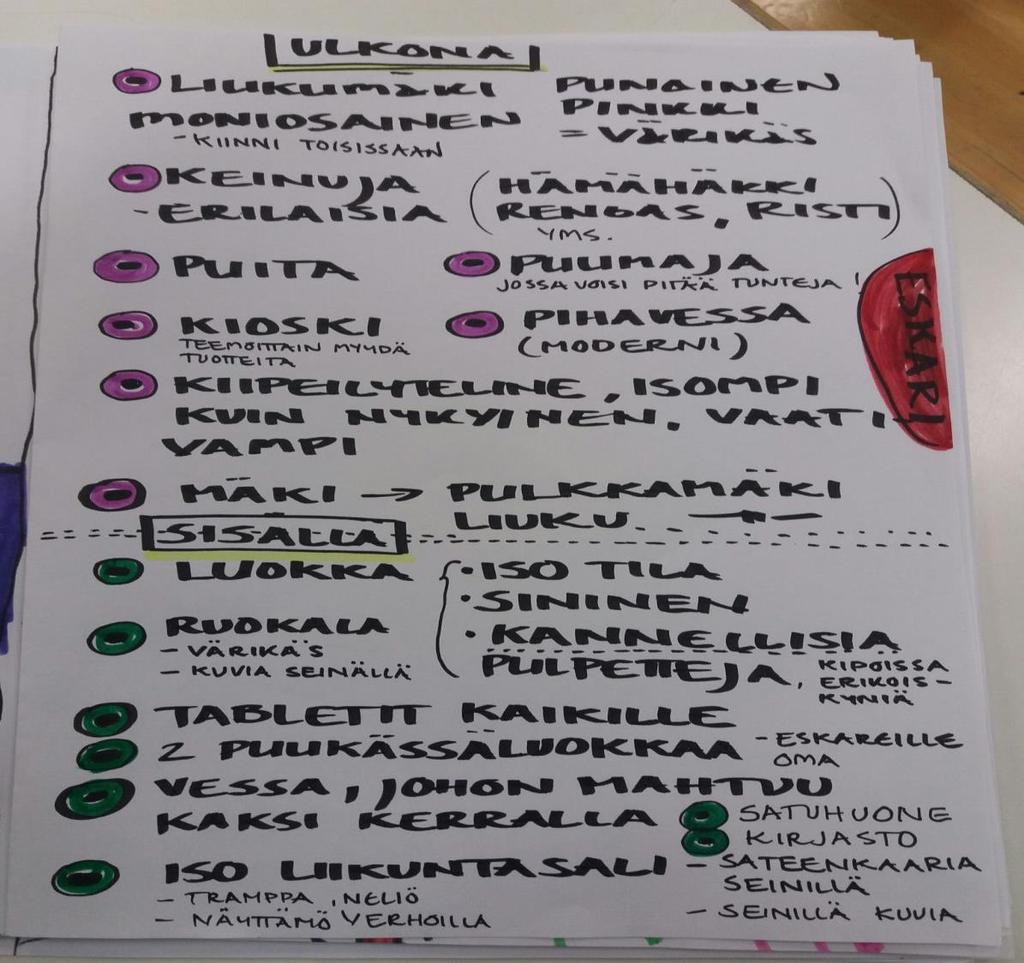 ULKONA
LIUKUMÄKI PUNAINEN
MONIOSAINEN PINKKI
- KIINNI TOISISSAAN = VÄRIKÄS
KEINUJA (HÄMÄHÄKKI
- ERILAISIA RENGAS, RISTI
YMS.)
PUITA
PUUMAJA
JOSSA VOISI PITÄÄ TUNTEJA!
KIOSKI
TEEMOITTAIN MYYDÄ
TUOTTEITA
PIHAVESSA
(MODERNI)
ESKARI
KIIPEILYTELINE, ISOMPI
KUIN NYKYINEN, VAATI
VAMPI
MÄKI → PULKKAMÄKI
LIUKU
SISÄLLÄ
LUOKKA
• ISO TILA
• SININEN
• KANNELLISIA
PULPETTEJA, KIPOISSA
ERIKOIS-
KYNIÄ
RUOKALA
- VÄRIKÄS
- KUVIA SEINÄLLÄ
TABLETIT KAIKILLE
2 PUUKÄSSÄLUOKKAA - ESKAREILLE
OMA
VESSA, JOHON MAHTUU
KAKSI KERRALLA
SATUHUONE
KIRJASTO
- SATEENKAARIA
SEINILLÄ
- SEINILLÄ KUVIA
ISO LIIKUNTASALI
- TRAMPPA, NELIÖ
- NÄYTTÄMÖ VERHOILLA